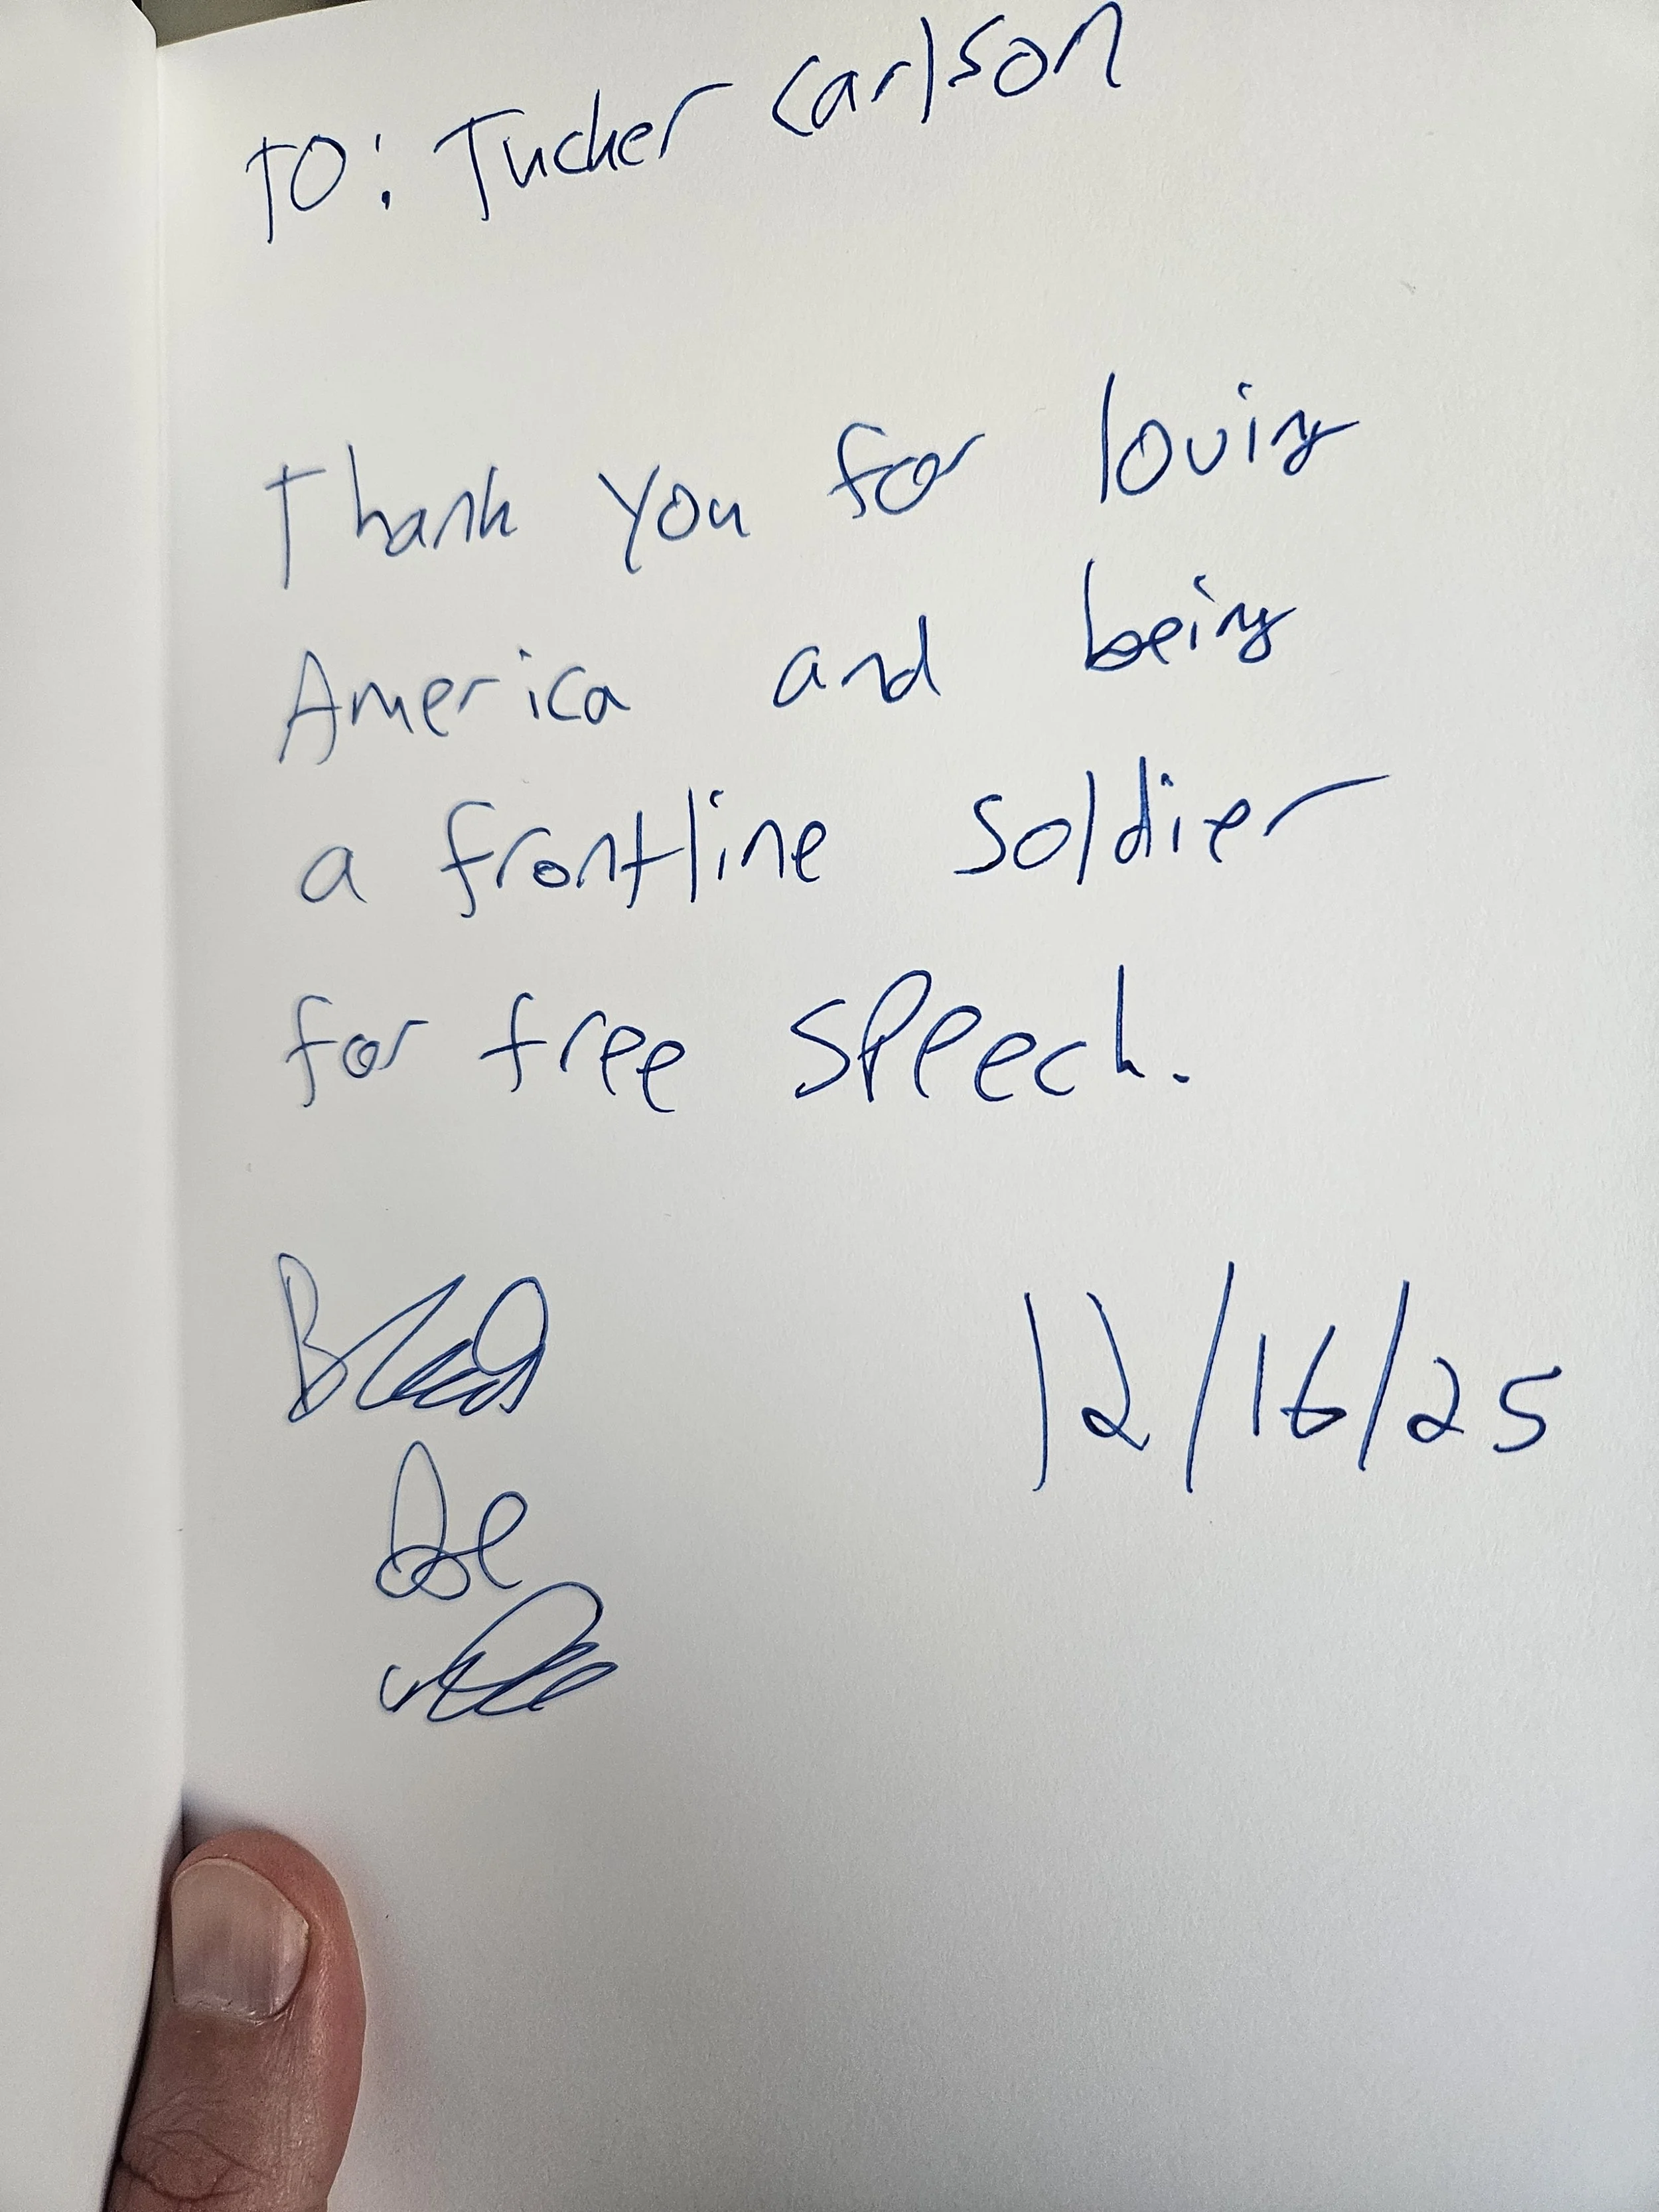 TO: Tucker Carlson
Thank you for loving
America and being
a frontline soldier
for free speech.
12/16/25